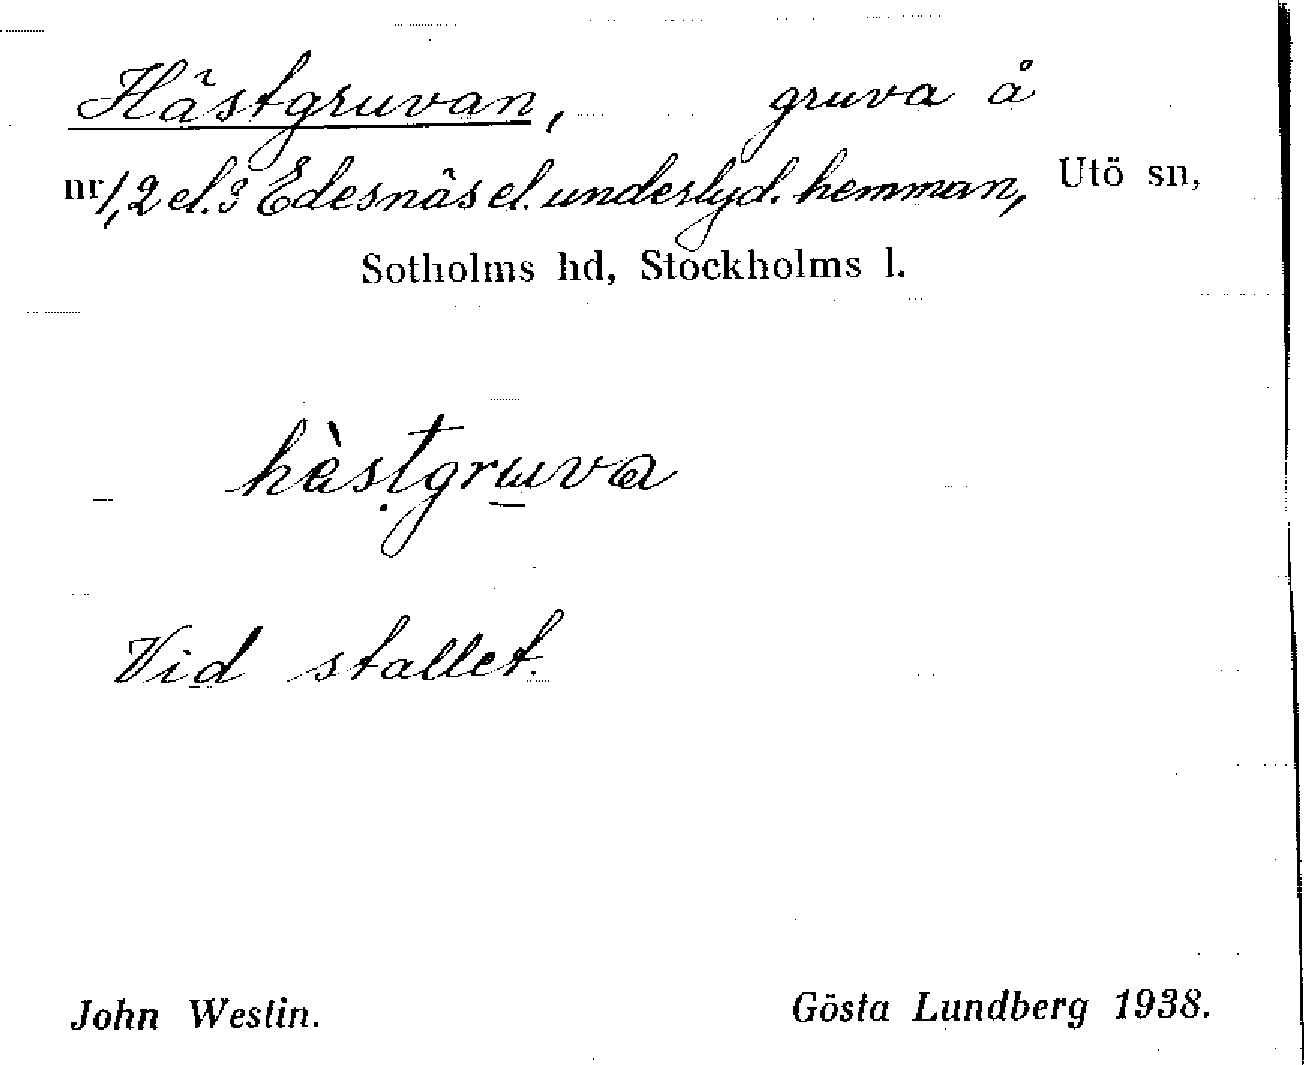 Hästgruvan, gruva å
nr 1, 2 el. 3 Edesnäs el. underlyd. hemman, Utö sn,
Sotholms hd, Stockholms l.
hàstgruva
Vid stallet.
John Westin. Gösta Lundberg 1938.